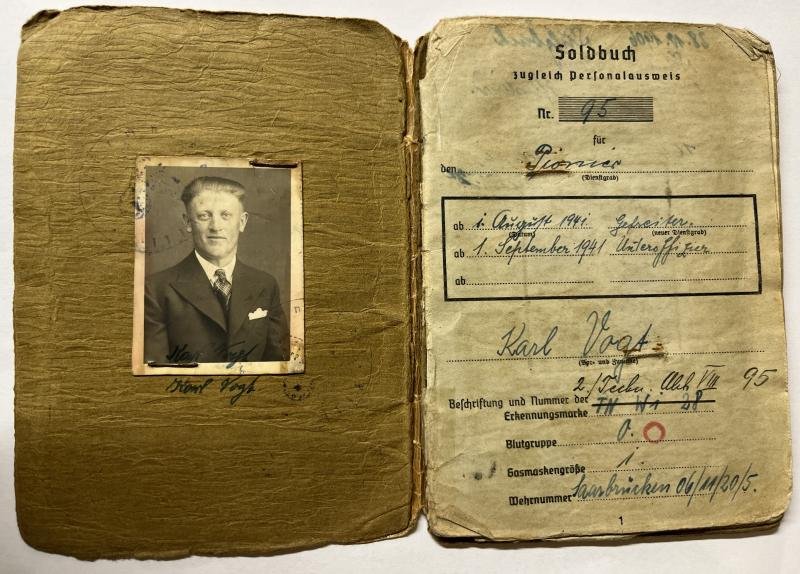 Karl Vogt
Karl Vogt
Soldbuch
zugleich Personalausweis
Nr. 95
für
den Pionier
(Dienstgrad)
ab 1. August 1941 Gefreiter.
(Datum) (neuer Dienstgrad)
ab 1. September 1941 Unteroffizier
ab
Karl Vogt
(Vor- und Zuname)
2./Techn. Abt. VIII 95
Beschriftung und Nummer der
Erkennungsmarke TN Wi 28
Blutgruppe O.
Gasmaskengröße 1.
Wehrnummer Saarbrücken 06/11/20/5.
1